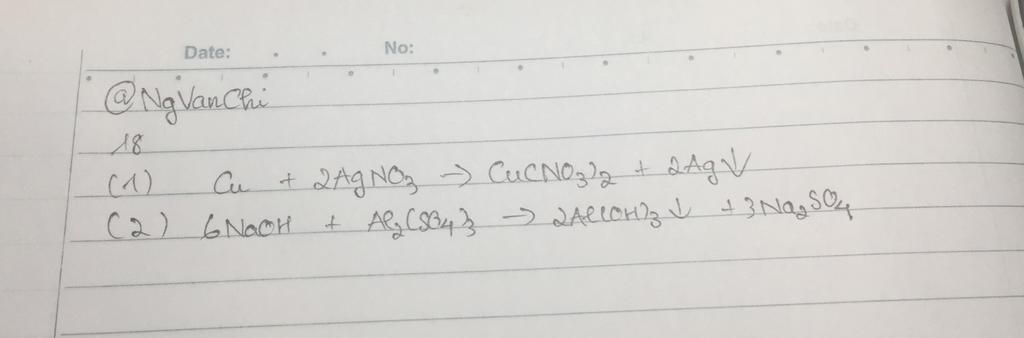 Date: No:
@NgVanChi
18
(1) Cu + 2AgNO3 → Cu(NO3)2 + 2Ag↓
(2) 6NaOH + Al2(SO4)3 → 2Al(OH)3↓ + 3Na2SO4